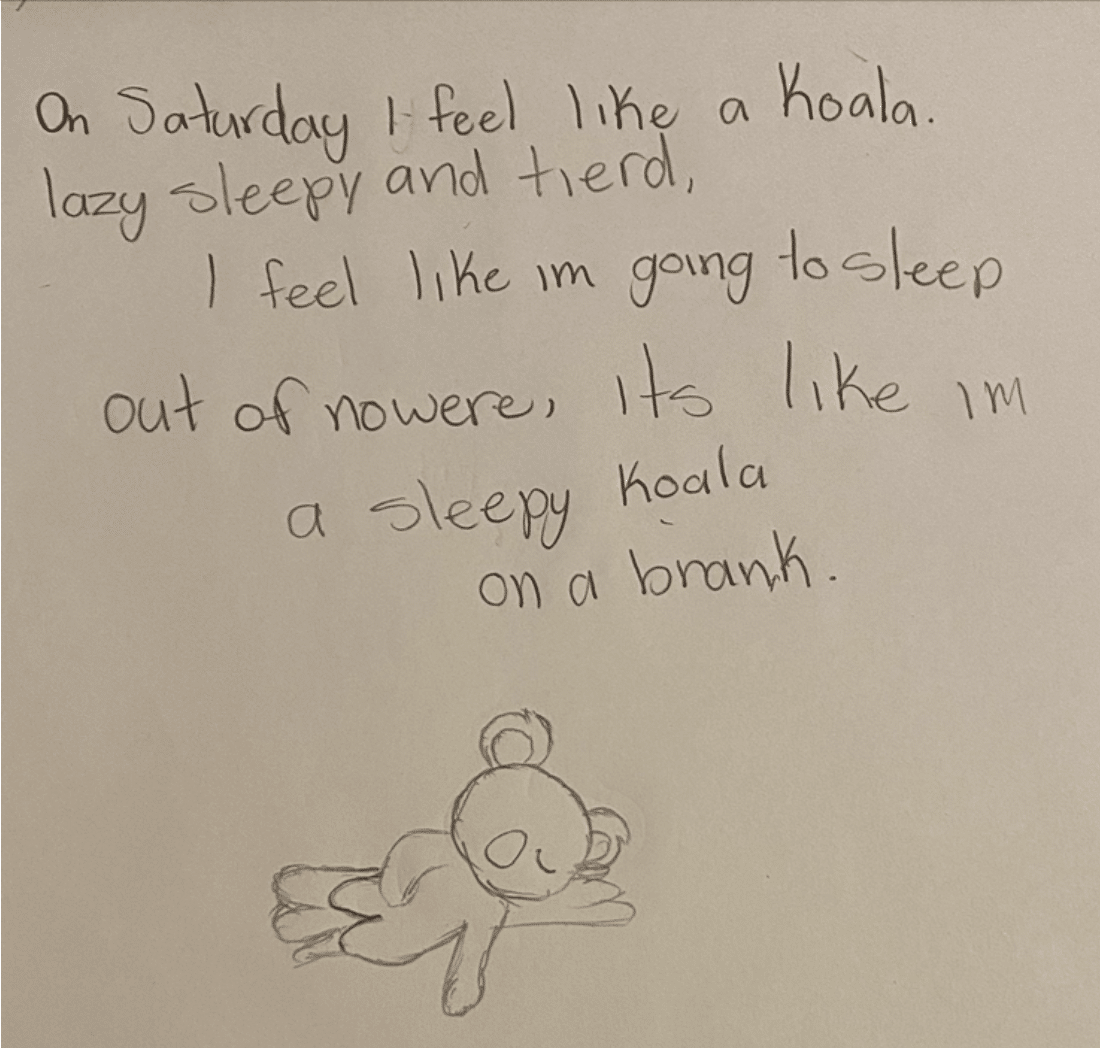 On Saturday I feel like a Koala.
lazy sleepy and tierd,
I feel like im going to sleep
out of nowere, its like im
a sleepy Koala
on a brank.